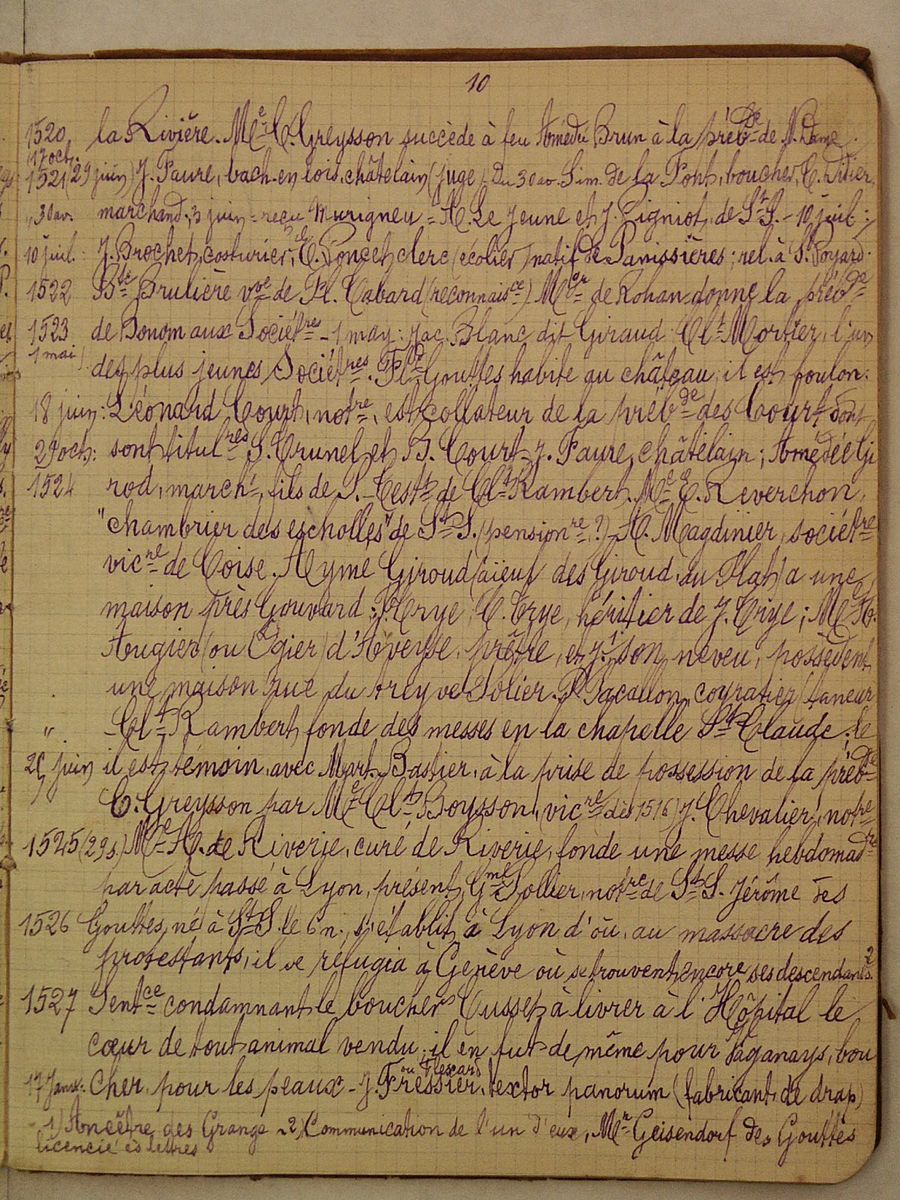 10
1520 la Rivière. Mᵉ C. Greysson succède à feu Amedu Brun à la prébᵈᵉ de N. Dame
17 oct.
1521 (29 juin) J. Faure, bach. en lois, châtelain (juge). Du 30 av. Sim. de la Font, boucher, C.
30 av. marchand, 3 juin = reçu Murigneu = A. Le Jeune et J. Pigniot, de Sᵗ S. - 10 juil:
10 juil: J. Brochet, costurier, E. Poncet, clerc (écolier) natif de Panissières; rel. à P. Poyard.
1522 Bᵗᵉ Brulière vᵛᵉ de Pl. Cabard (reconnaisᶜᵉ) Mᵍʳ de Rohan donne la prébᵈᵉ
1523 de Donom aux Sociétʳᵉˢ - 1 may: Jac. Blanc dit Giraud. Clᵗ Mortier, l'un
1 mai des plus jeunes Sociétʳᵉˢ. Flᵈ Gouttes habite au château, il est foulon:
18 juin: Léonard Court, notʳᵉ, est collateur de la prébᵈᵉ des Court dont
29 oct: sont titulʳᵉˢ S. Crunel et B. Court. J. Faure, châtelain; Amédée Gi
1524 rod, marchᵗ, fils de S. - Testᵗ de Clᵗ Rambert. Mᵉ E. Reverchon,
"chambrier des escholles" de Sᵗ S. (pensionʳᵉ?) A. Magdinier, sociétʳᵉ
vicʳᵉ de Coise. Ayme Giroud (aïeul des Giroud du Plat) a une
maison près Gouvard; P. Crye, C. Crye, héritier de J. Crye; Mᵉ A.
Augier (ou Ogier) d'Aveyse, prêtre, et Jⁿ son neveu, possèdent
une maison rue du treyve Solier. P. Pacallon, coyratier (tanneur
" Clᵗ Rambert fonde des messes en la chapelle Sᵗ Claude: le
25 juin il est témoin avec Mart. Bastier, à la prise de possession de la prébᵈᵉ
C. Greysson par Mᵉ Clᵗ Boysson, vicʳᵉ dès 1516) J. Chevalier, notʳᵉ
1525 (29 s.) Mᵉ A. de Riverie, curé de Riverie, fonde une messe hebdomadʳᵉ
par acte passé à Lyon, présent Gᵐᵉ Sollier, notʳᵉ de Sᵗ S. Jérôme des
1526 Gouttes, né à Sᵗ S. le 6 n., s'établit à Lyon d'où, au massacre des
protestants, il se réfugia à Genève où se trouvent encore ses descendants.²
1527 Sentᶜᵉ condamnant le boucher Cusset à livrer à l'Hôpital le
cœur de tout animal vendu; il en fut de même pour Paganays, bou
17 Janv. cher, pour les peaux - J. Fressier ou Frescard, textor panorum (fabricant de drap)
1) Ancêtre des Grange - 2) Communication de l'un d'eux, Mʳ Geisendorf des Gouttes
licencié ès lettres